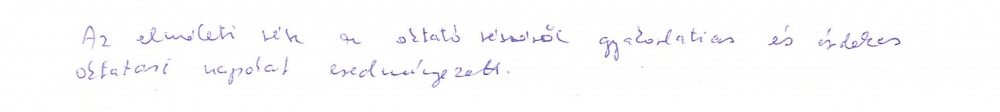 Az elméleti rész az oktató részéről gyakorlatias és érdekes
oktatási napokat eredményezett.